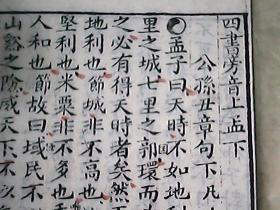 四書旁音上孟下
公孫丑章句下凡
孟子曰天時不如地利
里之城七里之郭環而
之必有得天時者矣然
地利也節城非不高也
堅利也米粟非不多也
人和也節故曰域民不
山谿之險威天下不以